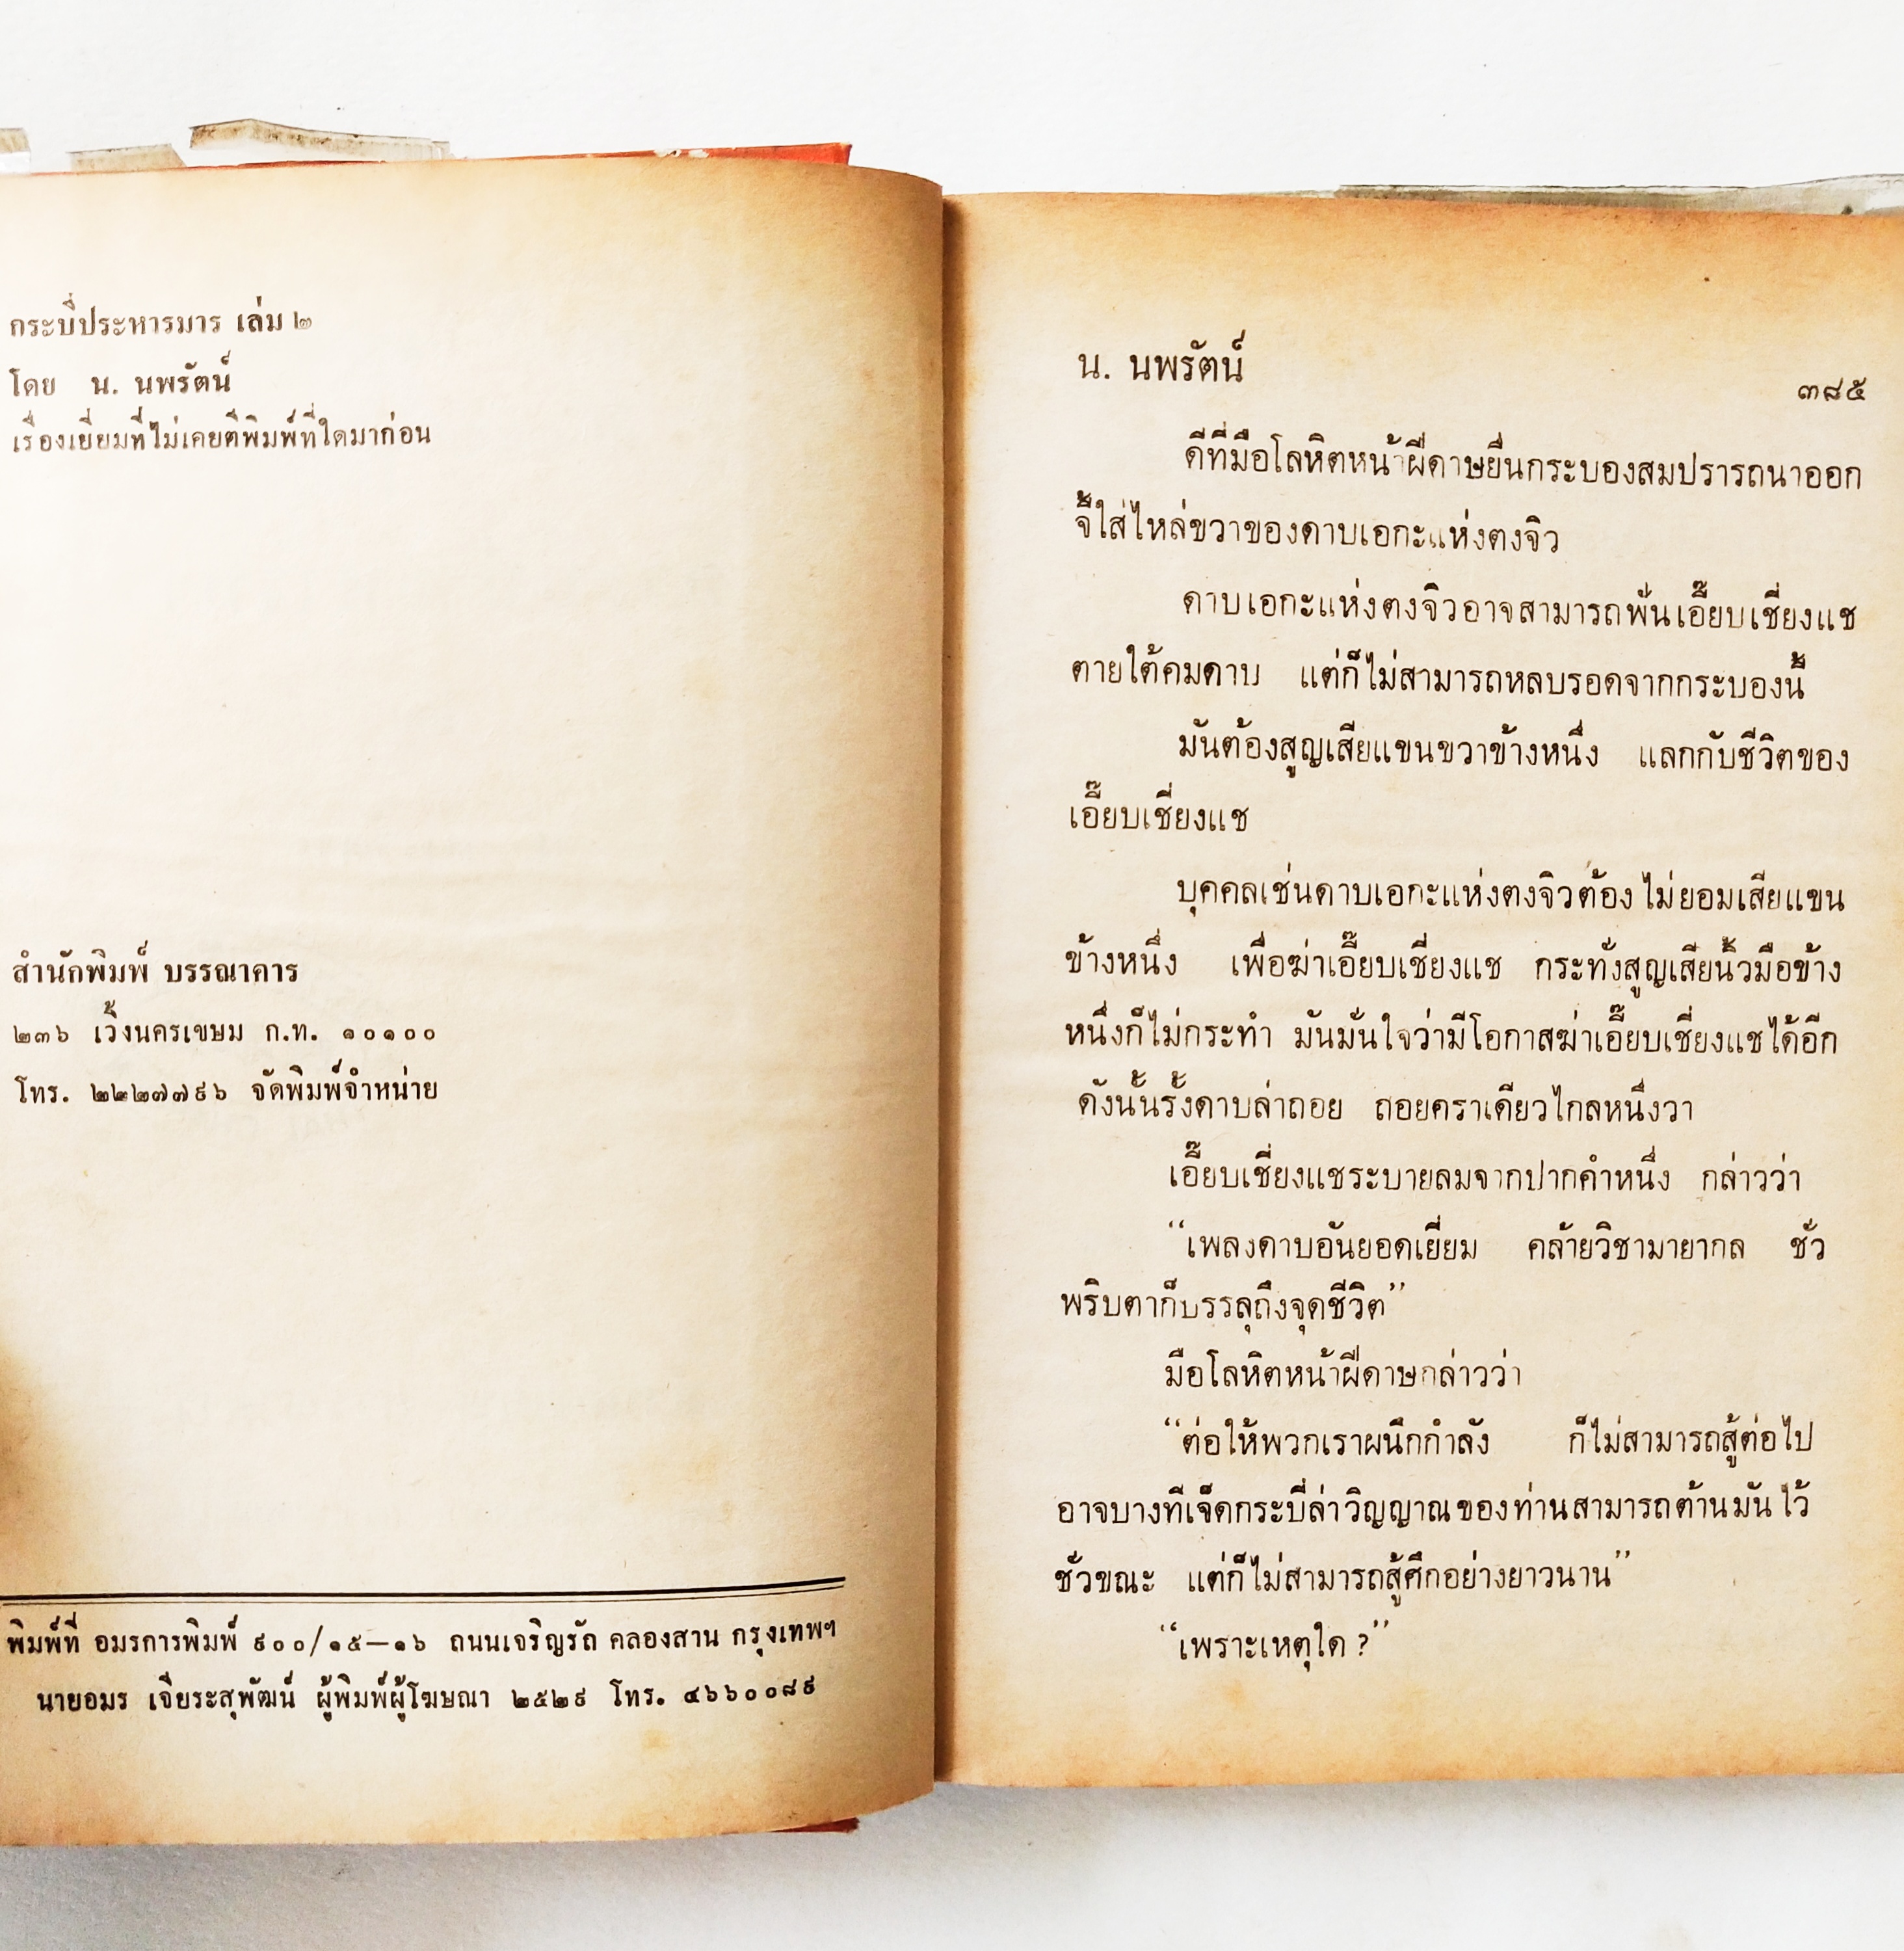 กระบี่ประหารมาร เล่ม ๒
โดย น. นพรัตน์
เรื่องเยี่ยมที่ไม่เคยตีพิมพ์ที่ใดมาก่อน
สำนักพิมพ์ บรรณาคาร
๒๓๖ เวิ้งนครเขษม ก.ท. ๑๐๑๐๐
โทร. ๒๒๒๗๗๙๖ จัดพิมพ์จำหน่าย
พิมพ์ที่ อมรการพิมพ์ ๙๐๐/๑๕—๑๖ ถนนเจริญรัถ คลองสาน กรุงเทพฯ
นายอมร เจียระสุพัฒน์ ผู้พิมพ์ผู้โฆษณา ๒๕๒๙ โทร. ๔๖๖๐๐๘๙
น. นพรัตน์
๓๘๕
ดีที่มือโลหิตหน้าผีดาษยื่นกระบองสมปรารถนาออก
จี้ใส่ไหล่ขวาของดาบเอกะแห่งตงจิว
ดาบเอกะแห่งตงจิวอาจสามารถฟันเอี๊ยบเชี่ยงแช
ตายใต้คมดาบ แต่ก็ไม่สามารถหลบรอดจากกระบองนี้
มันต้องสูญเสียแขนขวาข้างหนึ่ง แลกกับชีวิตของ
เอี๊ยบเชี่ยงแช
บุคคลเช่นดาบเอกะแห่งตงจิวต้องไม่ยอมเสียแขน
ข้างหนึ่ง เพื่อฆ่าเอี๊ยบเชี่ยงแช กระทั่งสูญเสียนิ้วมือข้าง
หนึ่งก็ไม่กระทำ มันมั่นใจว่ามีโอกาสฆ่าเอี๊ยบเชี่ยงแชได้อีก
ดังนั้นรั้งดาบล่าถอย ถอยคราเดียวไกลหนึ่งวา
เอี๊ยบเชี่ยงแชระบายลมจากปากคำหนึ่ง กล่าวว่า
“เพลงดาบอันยอดเยี่ยม คล้ายวิชามายากล ชั่ว
พริบตาก็บรรลุถึงจุดชีวิต”
มือโลหิตหน้าผีดาษกล่าวว่า
“ต่อให้พวกเราผนึกกำลัง ก็ไม่สามารถสู้ต่อไป
อาจบางทีเจ็ดกระบี่ล่าวิญญาณของท่านสามารถต้านมันไว้
ชั่วขณะ แต่ก็ไม่สามารถสู้ศึกอย่างยาวนาน”
“เพราะเหตุใด ?”